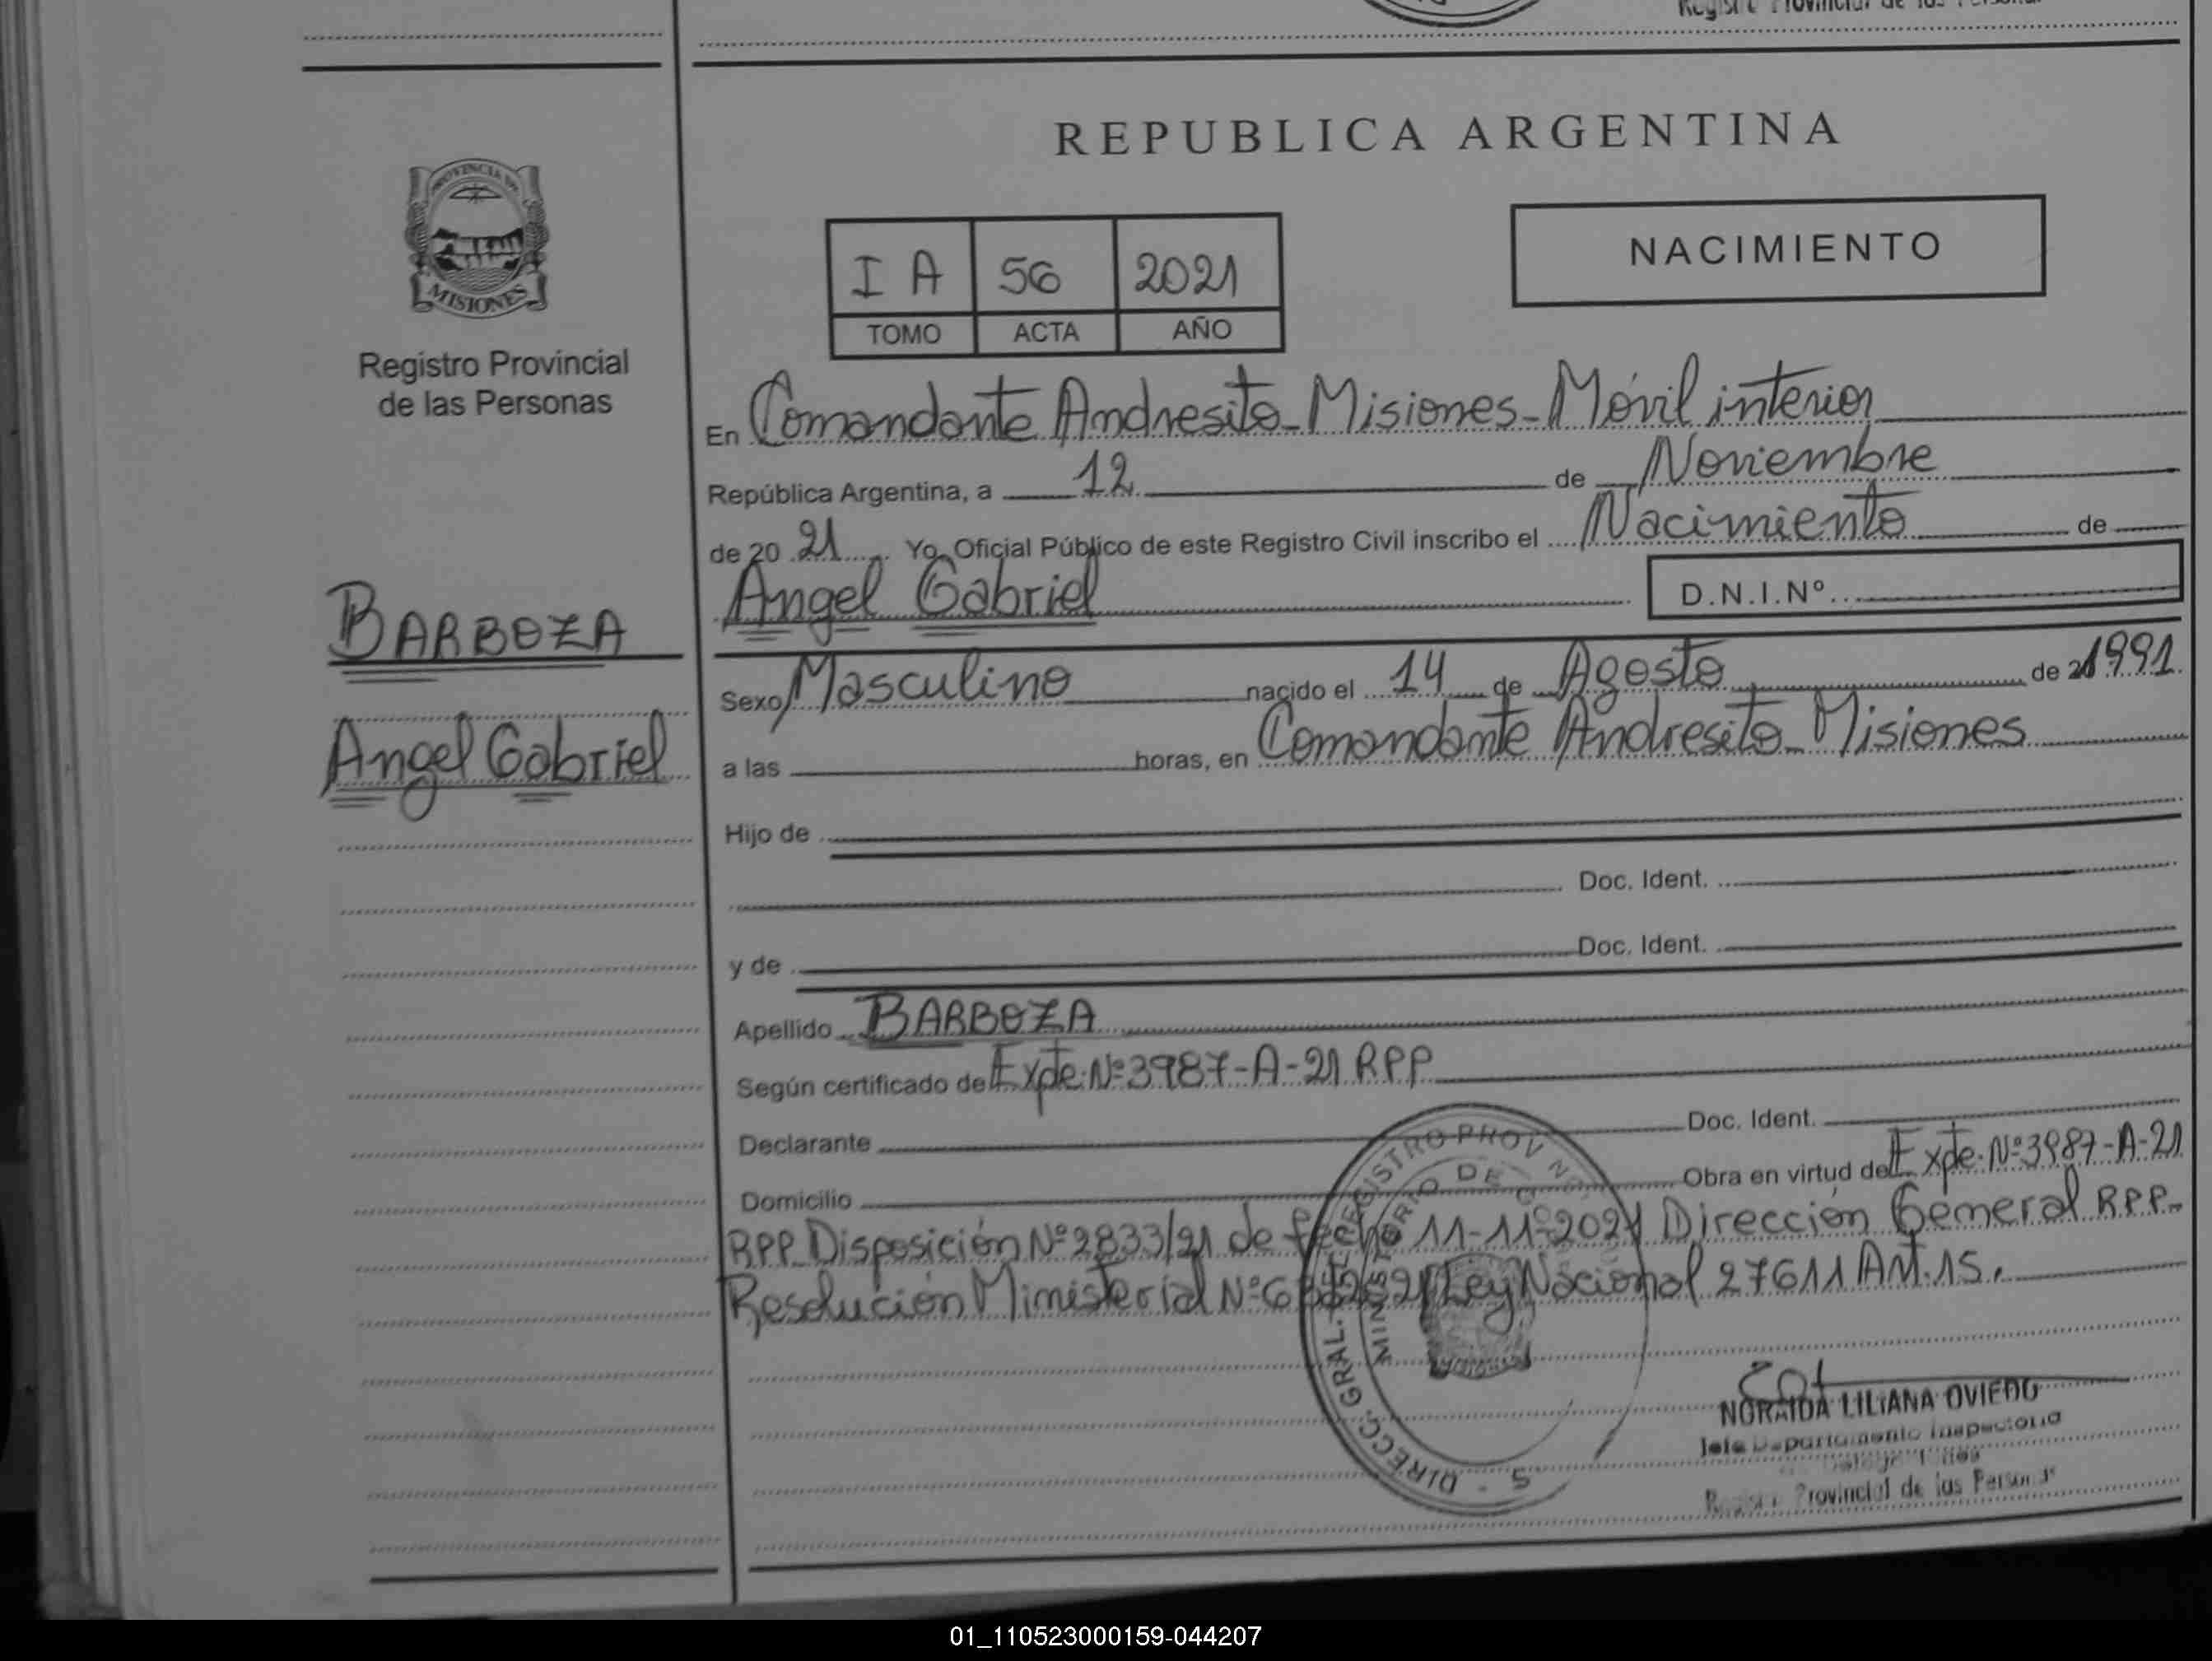 PROVINCIA DE
MISIONES
Registro Provincial
de las Personas
BARBOZA
Angel Gabriel
REPUBLICA ARGENTINA
I A 56 2021
TOMO ACTA AÑO
NACIMIENTO
En Comandante Andresito - Misiones - Móvil interior
República Argentina, a 12 de Noviembre
de 20 21 Yo, Oficial Público de este Registro Civil inscribo el Nacimiento de
Angel Gabriel D.N.I.Nº
Sexo Masculino nacido el 14 de Agosto de 1991
a las horas, en Comandante Andresito - Misiones
Hijo de
Doc. Ident.
y de Doc. Ident.
Apellido BARBOZA
Según certificado de Expte. Nº 3987-A-21 RPP
Declarante Doc. Ident.
Domicilio Obra en virtud de Expte. Nº 3987-A-21
RPP Disposición Nº 2833/21 de fecha 11-11-2021 Dirección General RPP.
Resolución Ministerial Nº Ley Nacional 27611 Art. 15.
DIRECC. GRAL. REGISTRO PROV
NORAIDA LILIANA OVIEDO
Jefe Departamento Inspectoria
Provincial de las Personas
01_110523000159-044207